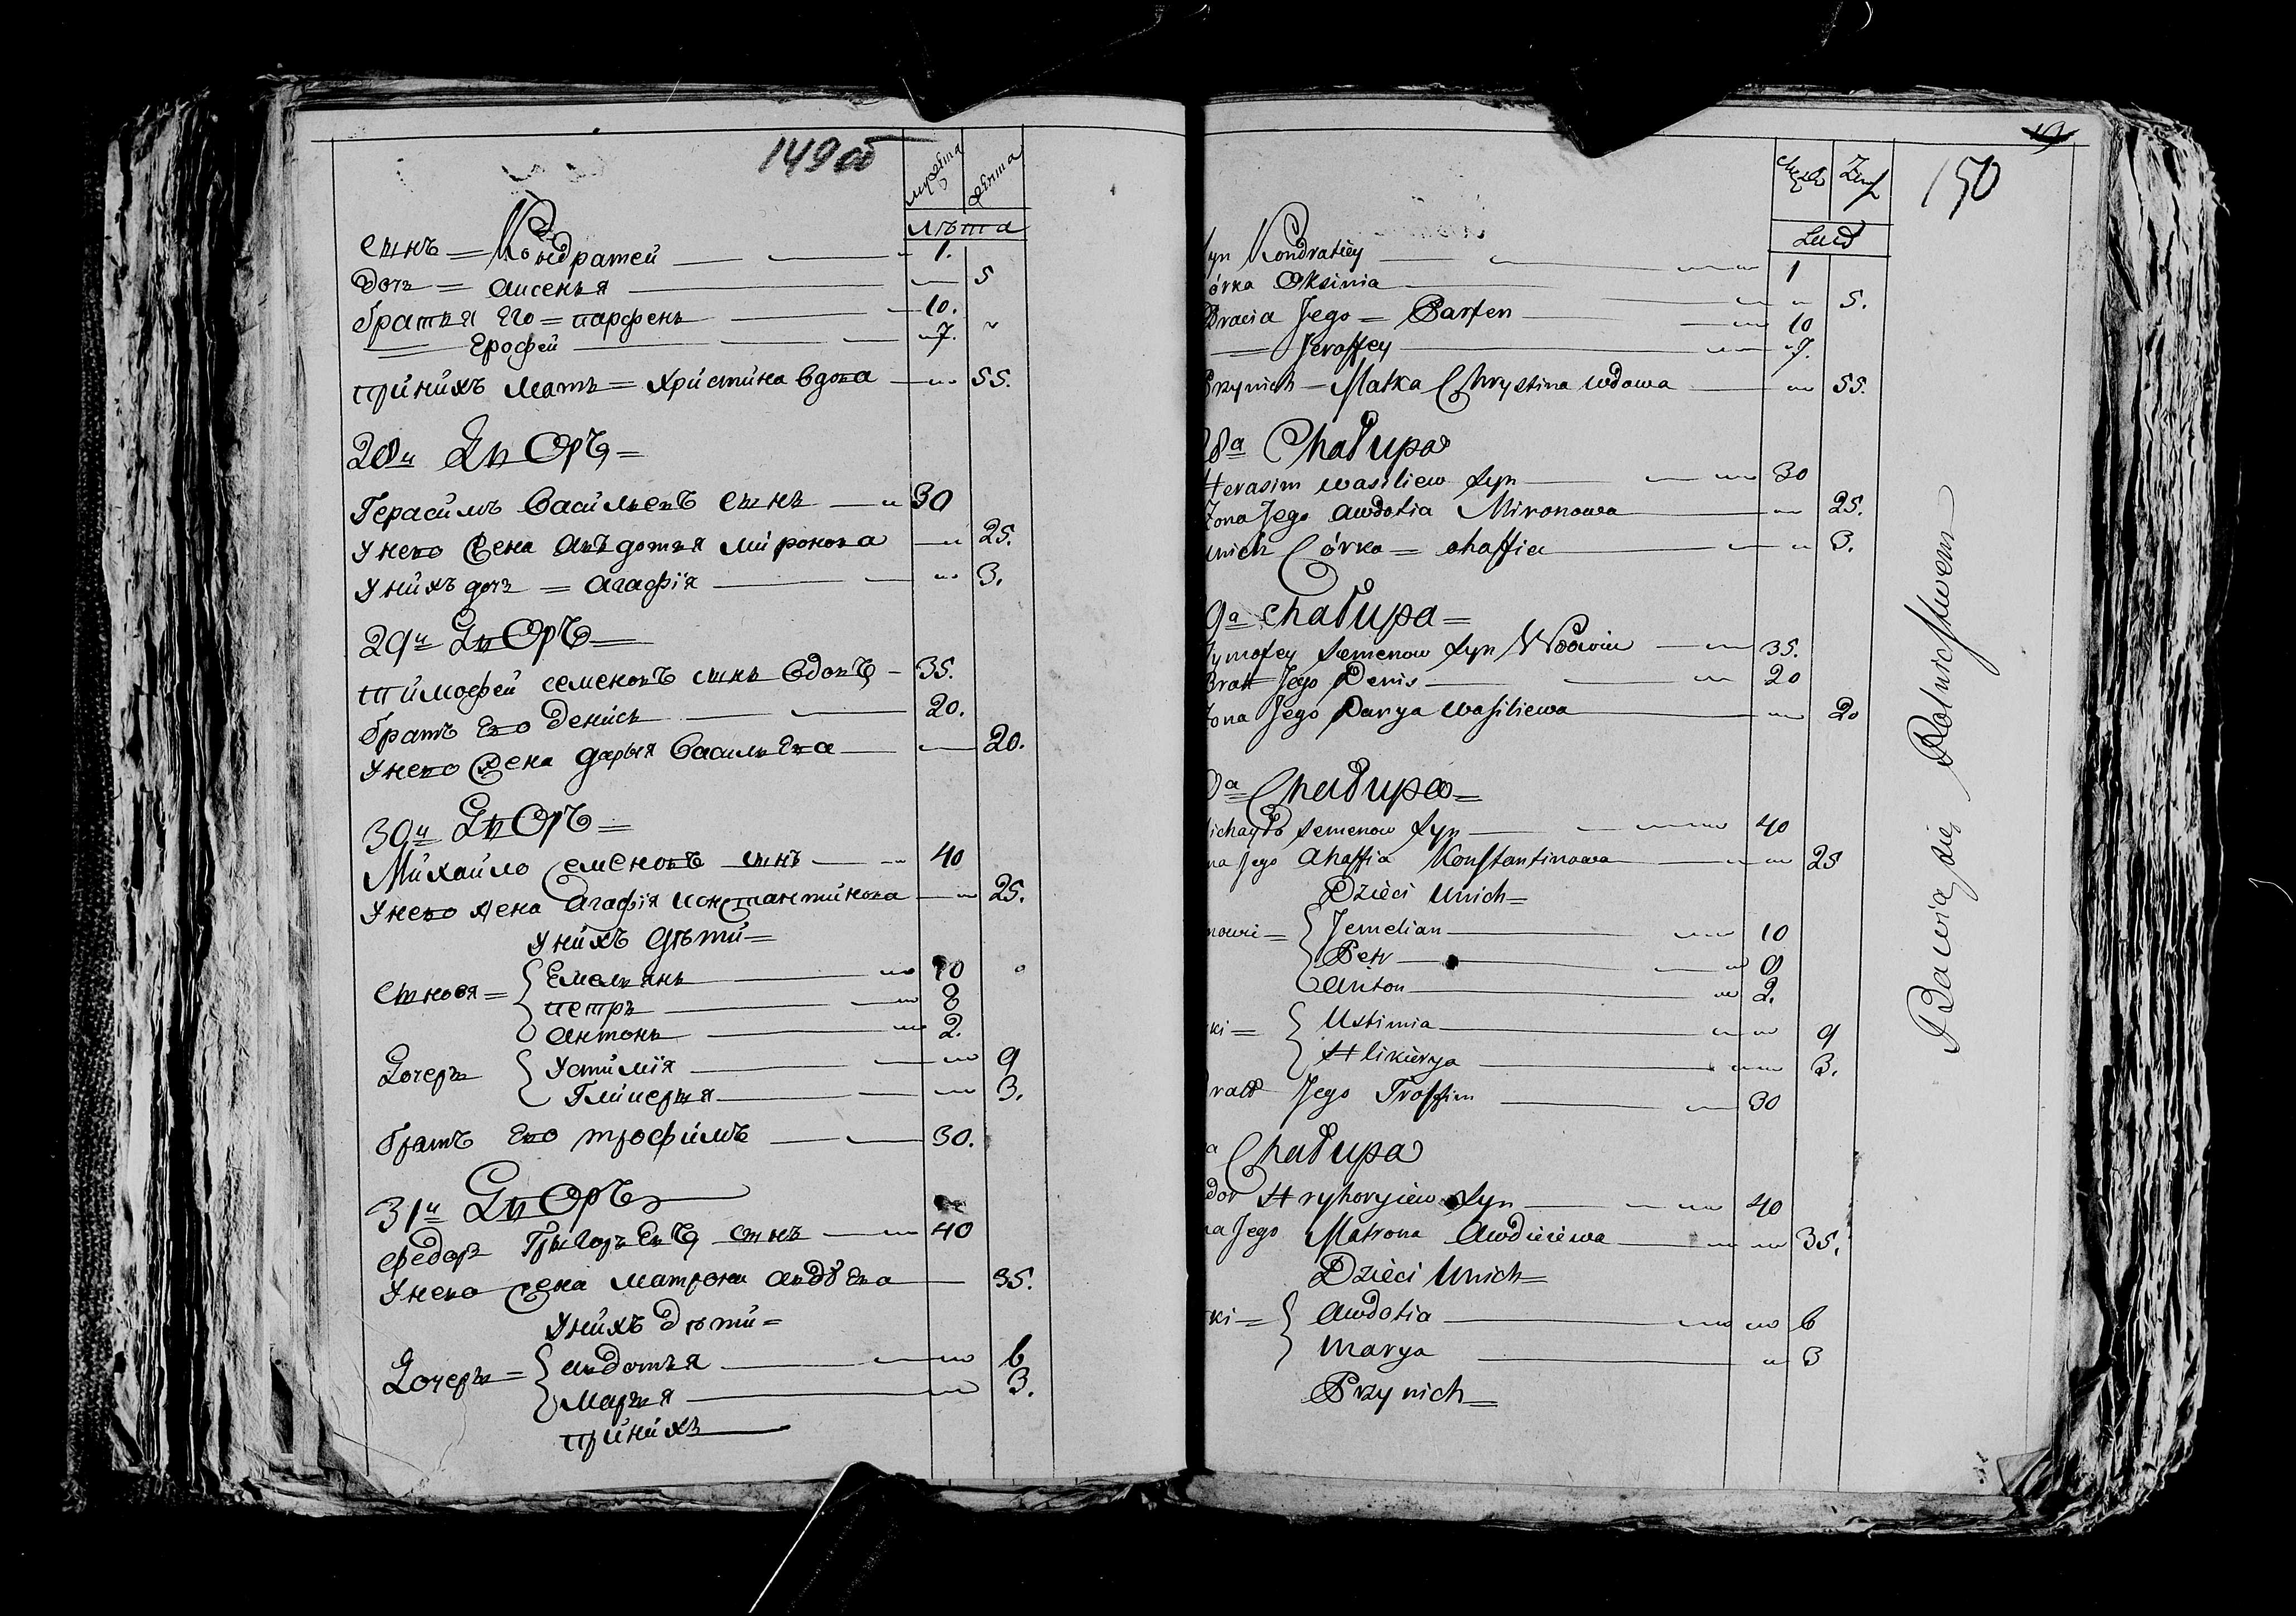 149 об
мужеска
женска
лѣта
сынъ = Кондратей 1.
дочь = Аксенья 5
братья Его = парфенъ 10.
Ерофей 7.
принихъ мать = христина вдова 55.
28й Дворъ =
Герасимъ Васильевъ сынъ 30
Унево Жена Авъдотья миронова 25.
Унихъ дочь = Агафїя 3.
29й Дворъ =
тимофей семеновъ сынъ вдовъ 35.
братъ Ево денисъ 20.
Унево Жена дарья Васильева 20.
30й Дворъ =
Михайло Семеновъ сынъ 40
Унево жена Агафїя Константинова 25.
Унихъ дѣти =
сыновя = Емельянъ 10
петръ 8
антонъ 2.
Дочеръи Устимїя 9
Гликерья 3.
братъ Ево трофимъ 30.
31й Дворъ
федоръ Григорьевъ сынъ 40
Унево жена матрона авдѣева 35.
Унихъ дѣти =
Дочеръи = авдотья 6
Маръя 3.
принихъ
150
Męzka
Lata
yn Kondratiey 1
órka Oksinia 5.
Bracia Jego = Parfen 10
Jeroffey 7.
Przynich – Matka Chrystina wdowa 55.
8a Chałupa
Herasim wasiliew syn 30
Zona Jego Awdotia Mironowa 25.
unich Córka = Ahaffia 3.
9a Chałupa =
Tymofey Semenow syn Wdowiec 35.
Bratt Jego Denis 20
Zona Jego Darya Wasiliewa 20
0a Chałupa =
ichayło Semenow syn 40
na Jego Ahaffia Konstantinowa 25
Dzieci Unich =
nowie = Jemelian 10
Petr 8
Anton 2.
ki = Ustimia 9
Hlikierya 3.
ratt Jego Troffim 30
a Chałupa
dor Hryhoryiew syn 40
na Jego Matrona Awdieiewa 35.
Dzieci Unich =
ki = Awdotia 6
Marya 3
Przynich =